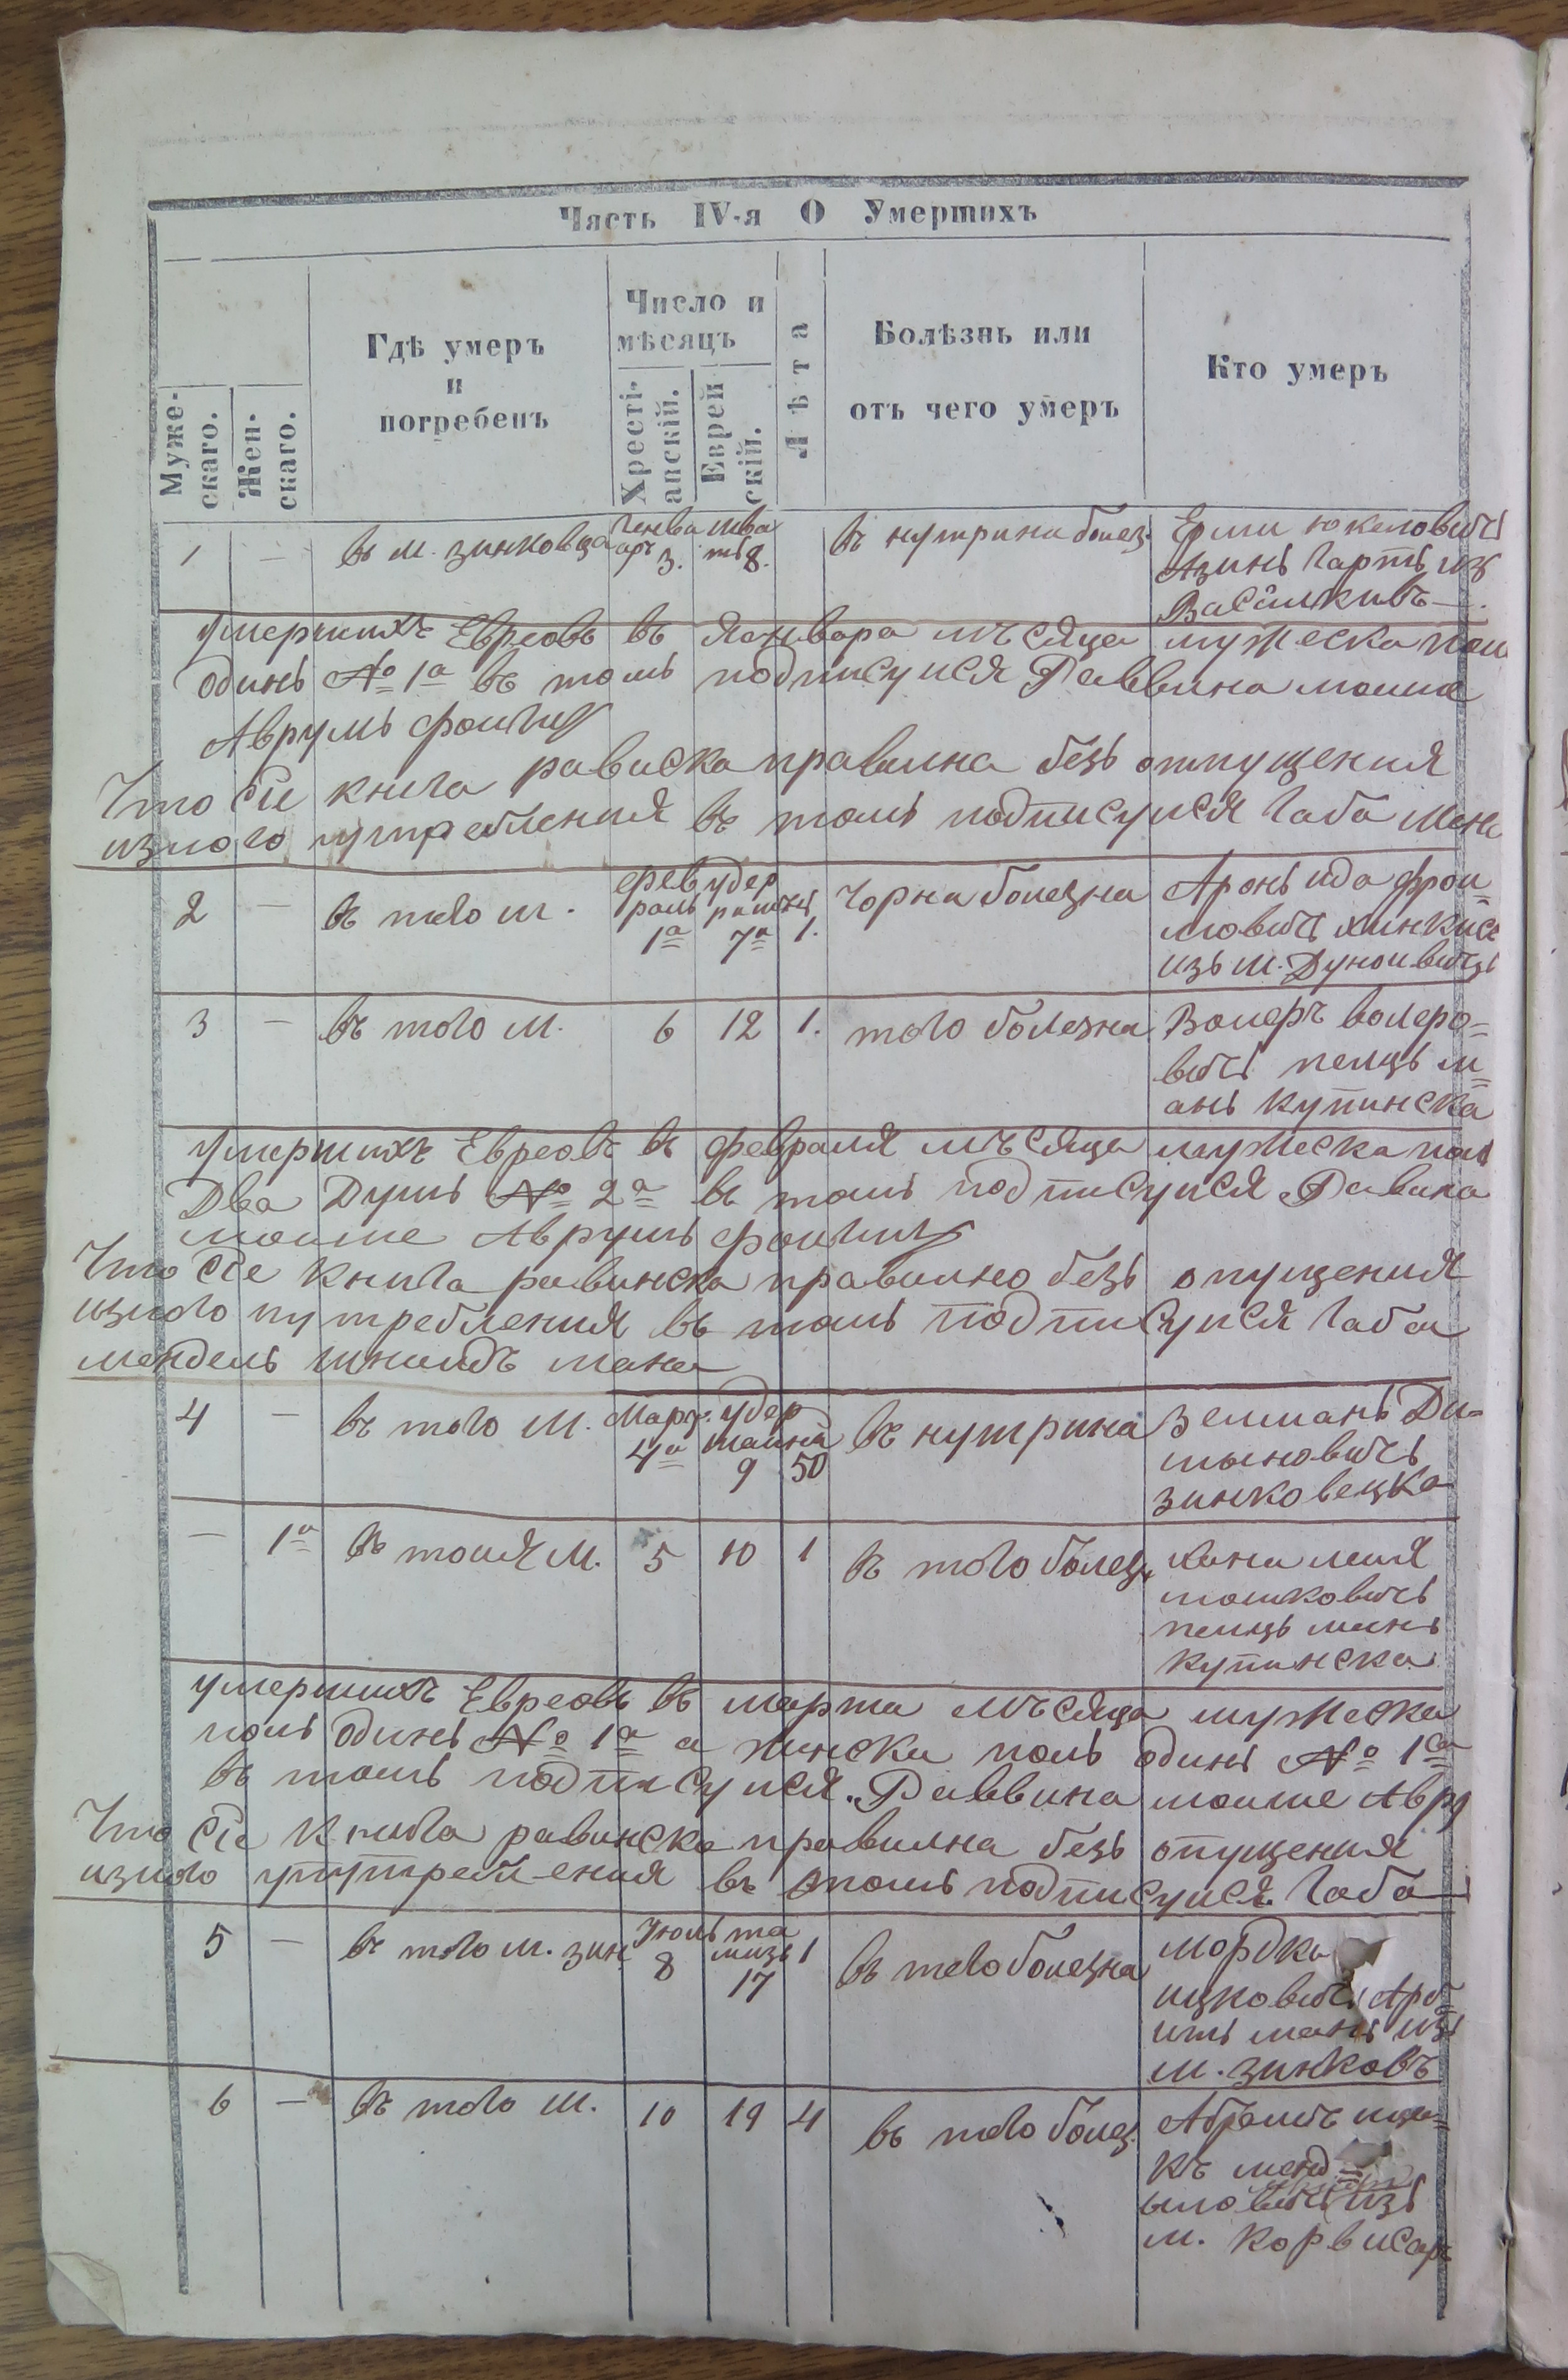 Часть IV-я О Умершихъ
Муже-
скаго.
Жен-
скаго.
Гдѣ умеръ
и
погребенъ
Число и
мѣсяцъ
Хресті-
анскій.
Еврей
скій.
Лѣта
Болѣзнь или
отъ чего умеръ
Кто умеръ
1 — въ м. зинковца Генва арь 3. шва тъ 8. въ нутрина болез. юкеловичъ
из
Василкивъ
умершихъ Евреовъ въ Январа мъсяца мужеска пол
одинъ № 1а въ томъ подписуися Раввина мошие
Аврумъ
Что Сіе книга рависка правилна безъ отпущения
измого утребления въ томъ подписуися Габа Мен
2 — въ того м. фев раль 1а удер ришенъ 7а 1. Чорна болезна Аронъ ида фрои=
мовичъ хинкисъ
изъ м. Дуноивицъ
3 — въ того м. 6 12 1. того болезна Волеръ волеро=
вичъ пеицъ м=
анъ купинска
умершихъ Евреовъ въ февраля мъсяца мужеска пол
Два Душъ № 2а въ томъ подписуися Равина
мошие Аврумъ
Что Сіе книга равинска правилно безъ опущения
измого путребления въ томъ подписуися Габа
мендель шмидъ мана
4 — въ того м. Марц. 4а удер шаина 9 50 въ нутрина Зелманъ Ди-
мыновичъ
зинковецка
— 1а въ тоия м. 5 10 1 въ того болез. хана леия
мошковичъ
пеицъ манъ
купинска
умершихъ Евреовъ въ марта мъсяца мужеска
полъ одинъ № 1а а жинска полъ одинъ № 1а
въ томъ подписуися Раввина мошие Авру
Что Сіе книга равинска правилна безъ опущения
измого упутребления въ томъ подписуися Габа
5 — въ того м. зин Июль 8 та мизъ 17 1 въ того болезна мордка
ицковичъ
манъ изъ
м. зинковъ
6 — въ того м. 10 19 4 въ того болез. ицы=
къ менд=
ыловичъ изъ
м.